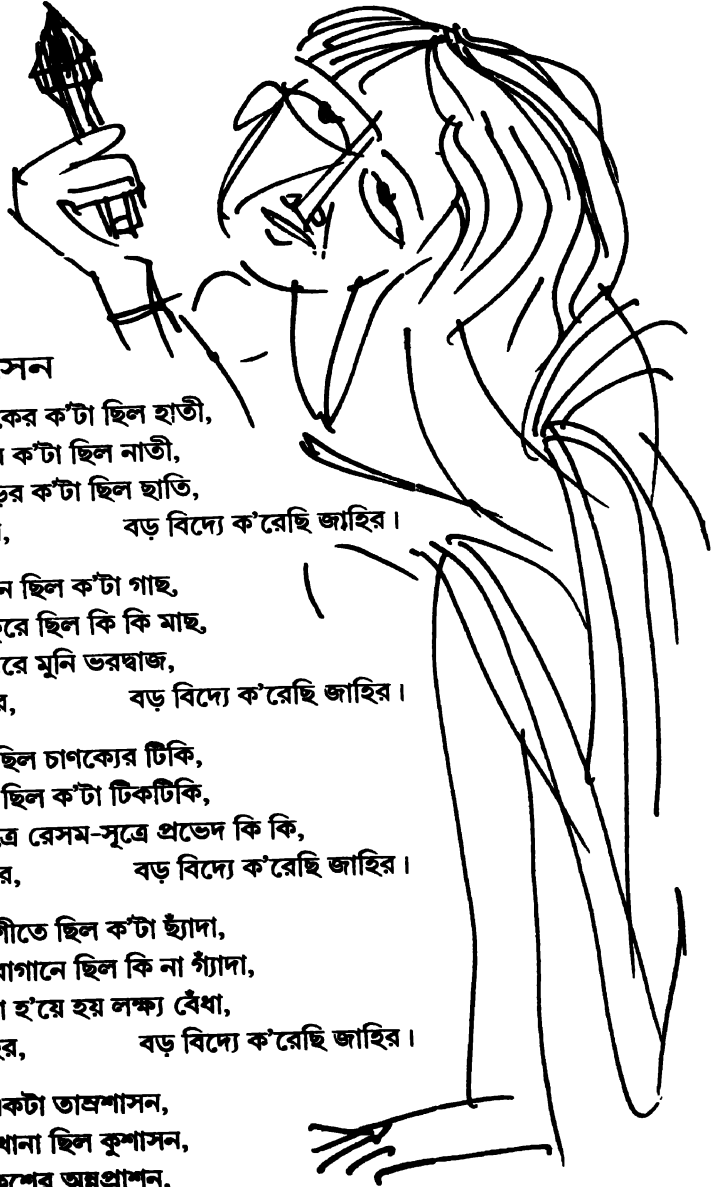 সন
কের ক'টা ছিল হাতী,
ক'টা ছিল নাতী,
ড়ের ক'টা ছিল ছাতি,
বড় বিদ্যে ক'রেছি জাহির।
ছিল ক'টা গাছ,
রে ছিল কি কি মাছ,
রে মুনি ভরদ্বাজ,
র, বড় বিদ্যে ক'রেছি জাহির।
ছিল চাণক্যের টিকি,
ছিল ক'টা টিকটিকি,
ত্রে রেসম-সূত্রে প্রভেদ কি কি,
র, বড় বিদ্যে ক'রেছি জাহির।
গীতে ছিল ক'টা ছ্যাঁদা,
বাগানে ছিল কি না গ্যাঁদা,
হ'য়ে হয় লক্ষ্য বেঁধা,
র, বড় বিদ্যে ক'রেছি জাহির।
কটা তাম্রশাসন,
খানা ছিল কুশাসন,
কেশের অন্নপ্রাশন,